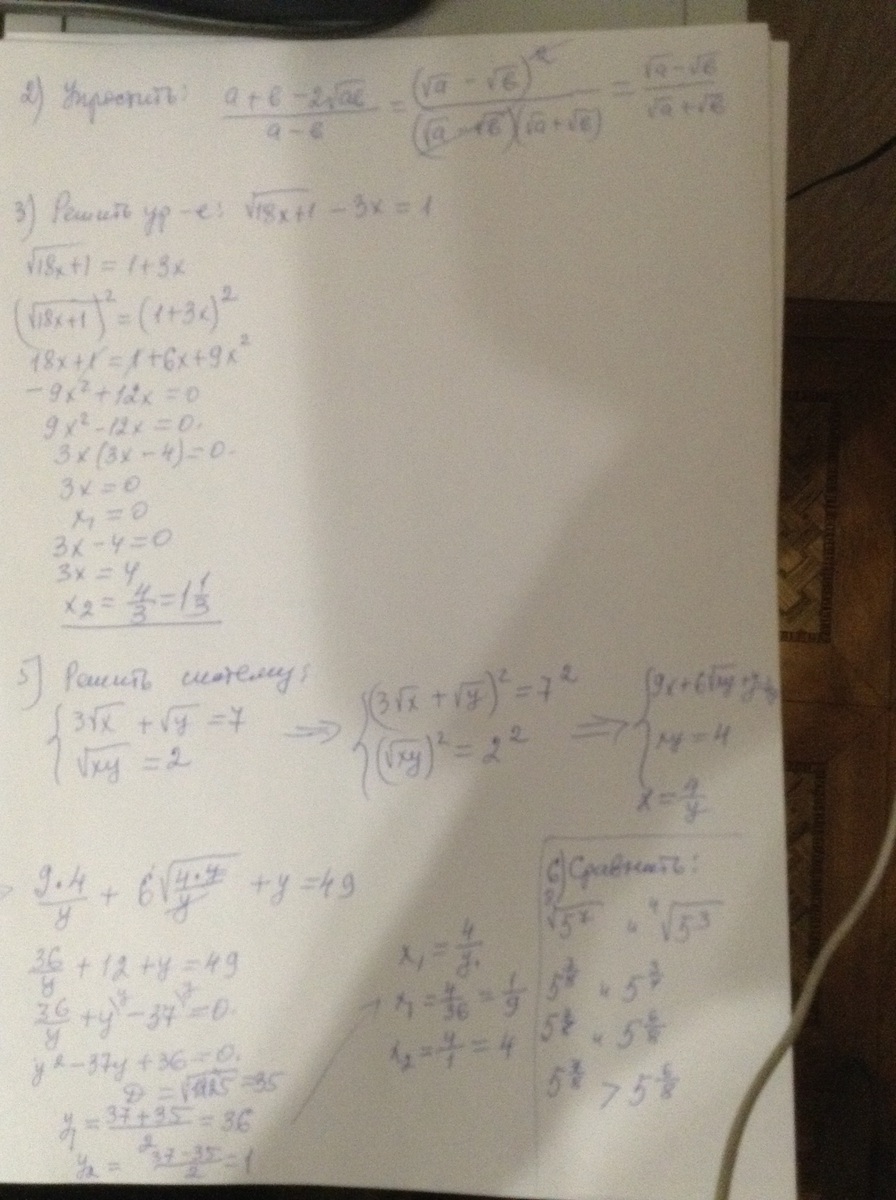 2) Упростить: (a + в - 2√aв)/(a - в) = (√a - √в)²/((√a - √в)(√a + √в)) = (√a - √в)/(√a + √в)
3) Решить ур-е: √18x+1 - 3x = 1
√18x+1 = 1+3x
(√18x+1)² = (1+3x)²
18x+1 = 1+6x+9x²
-9x² + 12x = 0
9x² - 12x = 0.
3x(3x - 4) = 0.
3x = 0
x₁ = 0
3x - 4 = 0
3x = 4
x₂ = 4/3 = 1 1/3
5) Решить систему:
{ 3√x + √y = 7 ⇒ { (3√x + √y)² = 7² ⇒ { 9x+6√xy+y=49
√xy = 2 (√xy)² = 2² xy = 4
x = 4/y
⇒ 9·4/y + 6√(4·y/y) + y = 49
36/y + 12 + y = 49
36/y + y - 37 = 0.
y² - 37y + 36 = 0.
D = √1225 = 35
y₁ = (37+35)/2 = 36
y₂ = (37-35)/2 = 1
x₁ = 4/y₁
→ x₁ = 4/36 = 1/9
x₂ = 4/1 = 4
6) Сравнить:
⁸√5⁷ и ⁴√5³
5^(7/8) и 5^(3/4)
5^(7/8) и 5^(6/8)
5^(7/8) > 5^(6/8)